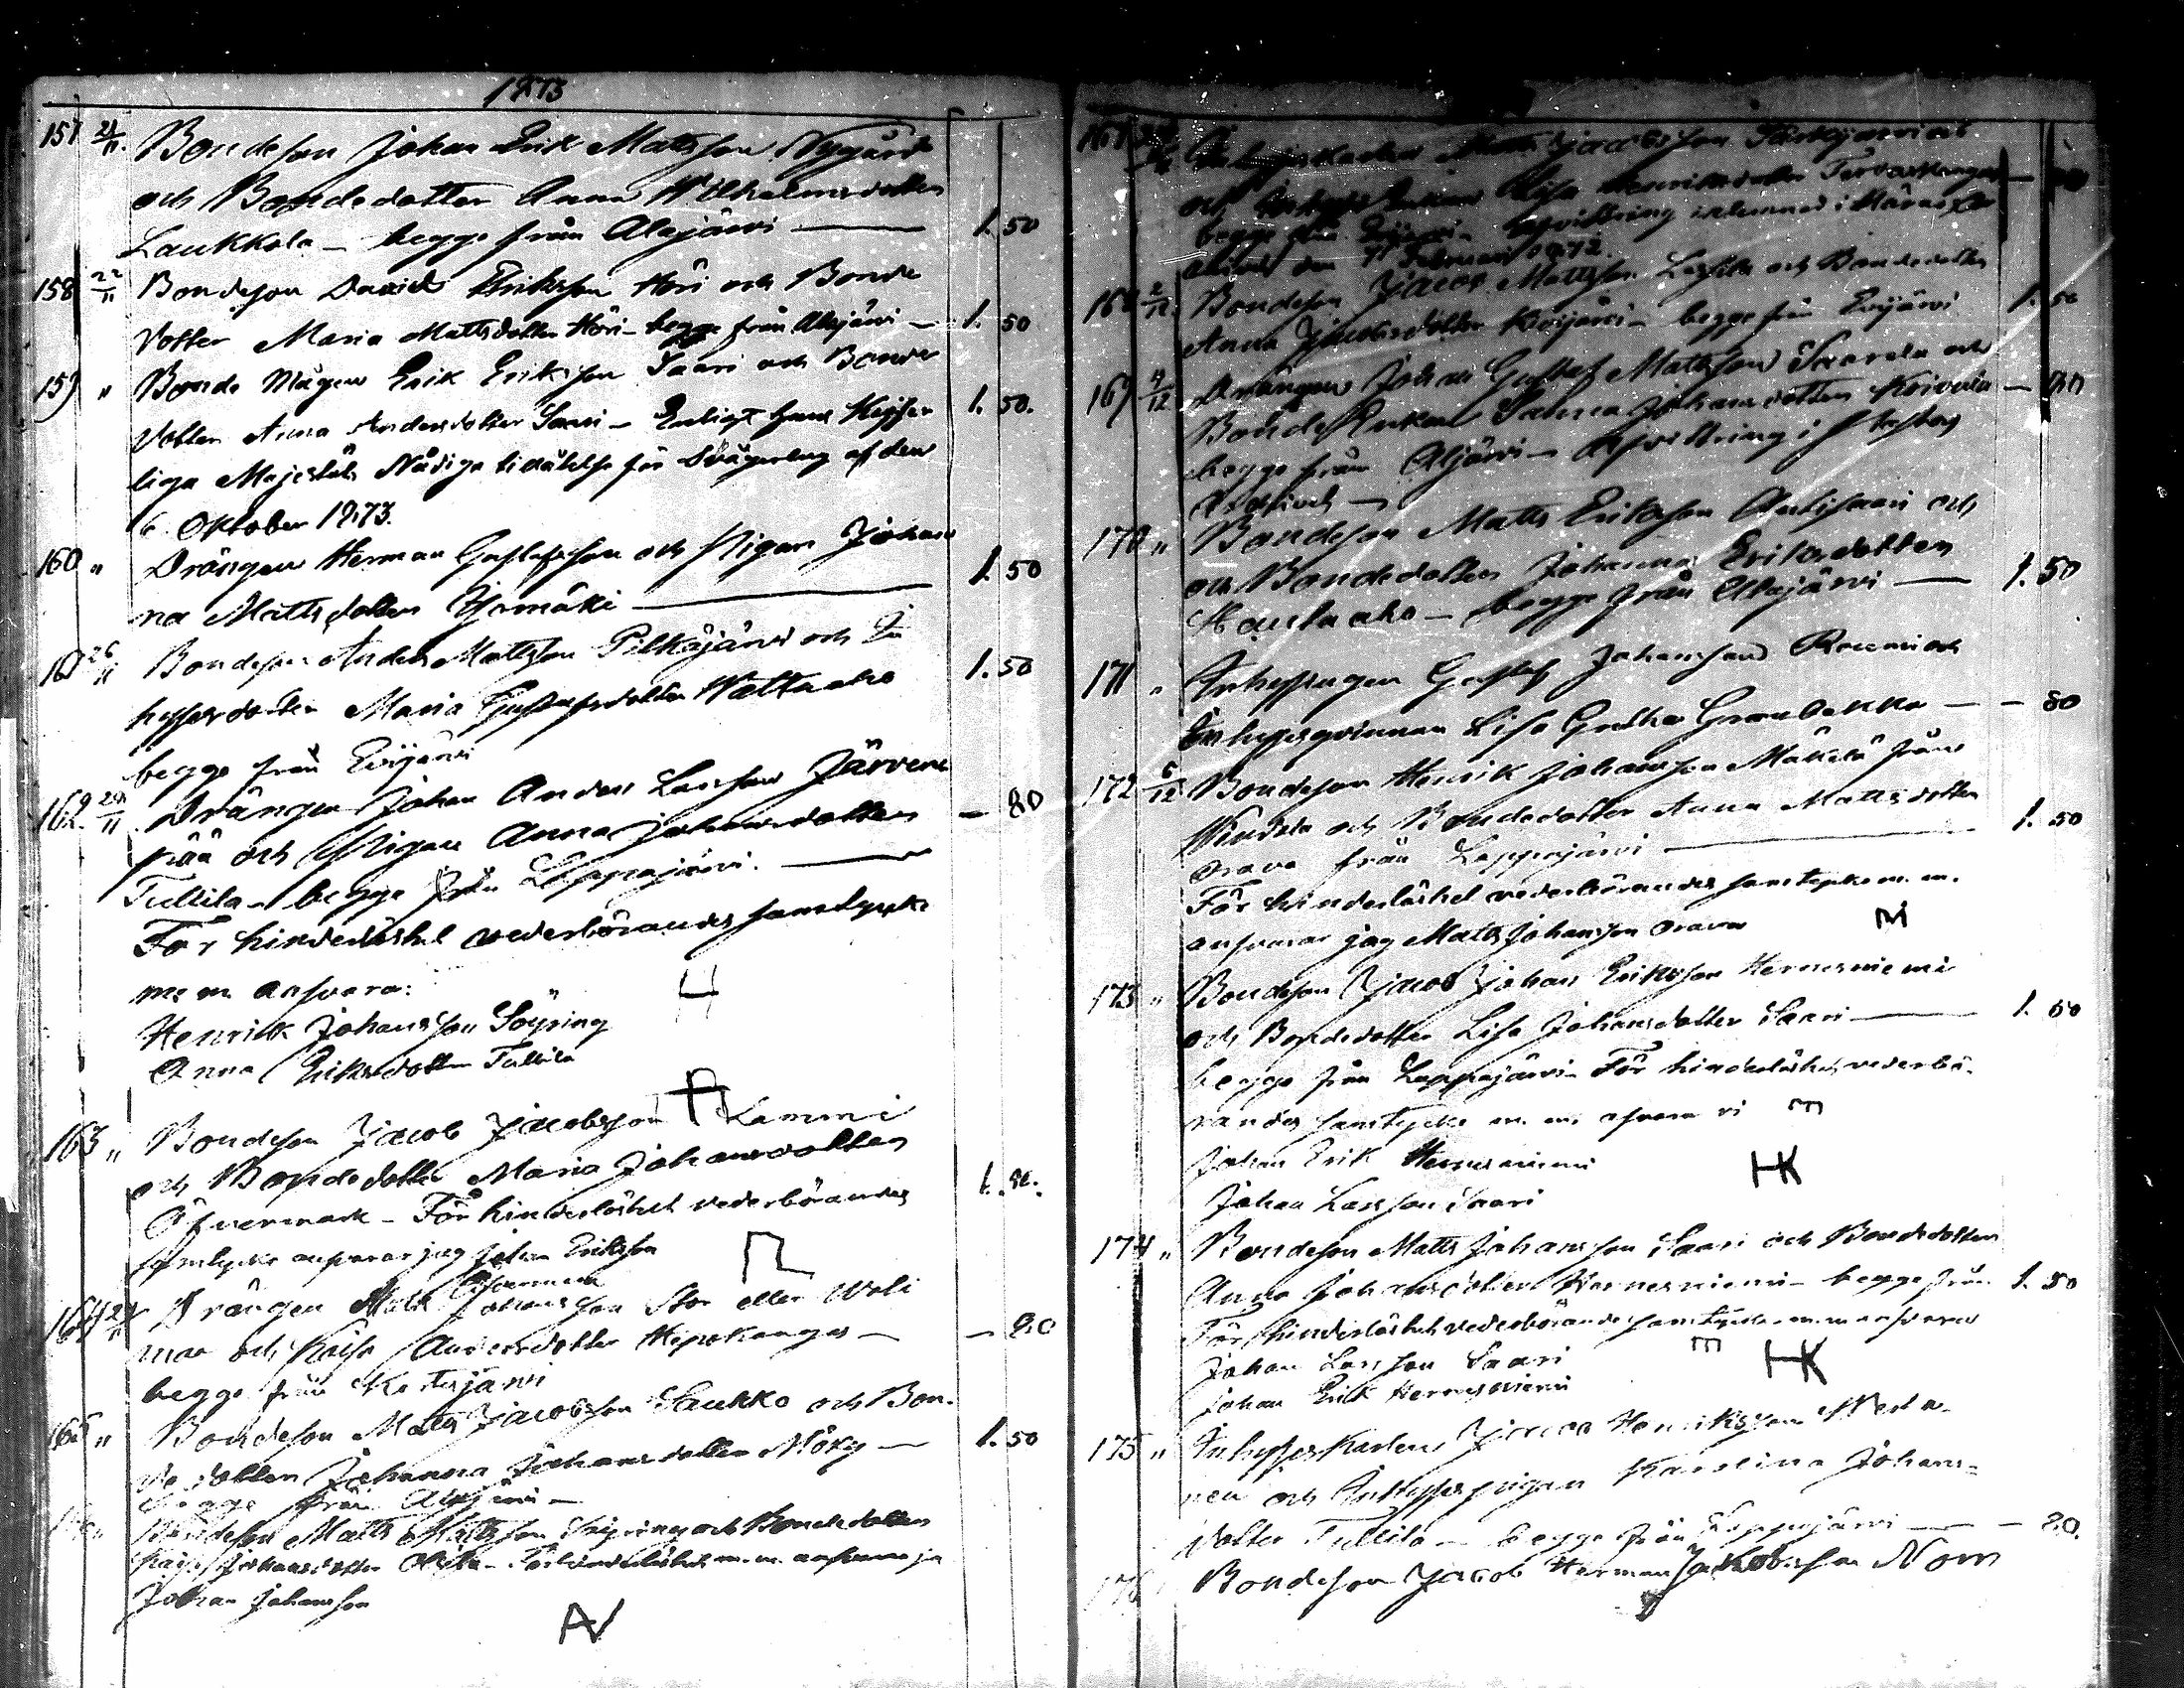 1873
157 21/11. Bondeson Johan Erik Mattsson Nygård
och Bondedotter Anna Wilhelmsdotter
Laukkola — begge från Alajärvi — 1. 50
158 22/11 Bondeson David Eriksson Höri och Bonde
dotter Maria Mattsdotter Höri — begge från Alajärvi — 1. 50
159 " Bonde Mågen Erik Eriksson Saari och Bonde
dotter Anna Andersdotter Saari — Enligt Hans Kejser 1. 50.
liga Majestäts Nådiga tillåtelse för Svågerlag af den
6 Oktober 1873.
160 " Drängen Herman Gustafsson och Pigan Johan
na Mattsdotter Jromäki — 1. 50
161 26/11 Bondeson Anders Mattsson Pilkäjärvi och In
hysesdotter Maria Gustafsdotter Wattaaho 1. 50
begge från Evijärvi
162. 29/11 Drängen Johan Anders Larsson Järven
pää och Pigan Anna Johansdotter — 80
Tullila — begge från Lappajärvi. —
För hinderslöshet vederbörandes samtycke
m. m. ansvara:
Henrik Johansson Söyring
Anna Eriksdotter Tullila
163 " Bondeson Jacob Jacobsson Lammi
och Bondedotter Maria Johansdotter
Öfvermark — För hinderslöshet vederbörandes 1.
samtycke ansvarar jag Johan Eriksson
Öfvermark
164 Drängen Matts Johansson Stor eller Woli
maa och Kaisa Andersdotter Hepokangas — — 80
begge från Kortesjärvi
165 " Bondeson Matts Jacobsson Saukko och Bon-
dedotter Johanna Johansdotter Möky — 1. 50
begge från Alajärvi —
Bondeson Matts Mattsson Söyring och Bondedotter
Kaisa Johansdotter — För hinderslöshet m. m. ansvarar jag
Johan Johansson
Inhyseskarlen Matts Jacobsson Särkijärvi och
och Enkan Lisa Henriksdotter Tervaskangas —
begge från Evijärvi — Afvittring inlemnad i Härads
den Februari 1872.
168 2/12. Bondeson Jacob Mattsson och Bondedotter
Anna Jacobsdotter Kivijärvi — begge från Evijärvi 1. 50
169 4/12 Drängen Johan Gustaf Mattsson Saarela och
Bonde Enkan Sanna Johansdotter Koivula — 80
begge från Alajärvi — Afvittring i
170 " Bondeson Matts Eriksson Antisaari och
och Bondedotter Johanna Eriksdotter
Hautaaho — begge från Alajärvi — 1. 50
171 " Inhysingen Gustaf Johansson Raumi och
Inhysesqvinnan Lisa Greta Granbacka — — 80
172 5/12 Bondeson Henrik Johansson Mäkelä från
Windala och Bondedotter Anna Mattsdotter
Orava från Lappajärvi — 1. 50
För hinderslöshet vederbörandes samtycke m. m.
ansvarar jag Matts Johansson Orava
173 " Bondeson Jacob Johan Eriksson Hernesniemi
och Bondedotter Lisa Johansdotter Saari — 1. 50
begge från Lappajärvi — För hinderslöshet, vederbö-
randes samtycke m. m. ansvara vi
Johan Erik Hernesniemi
Johan Larsson Saari
174 " Bondeson Matts Johansson Saari och Bondedotter
Anna Johansdotter Hernesniemi — begge från 1. 50
För hinderslöshet vederbörandes samtycke m. m. ansvara
Johan Larsson Saari
Johan Erik Hernesniemi
175 " Inhyseskarlen Jacob Henriksson
nen och Inhysespigan Karolina Johans-
dotter Tullila — begge från Lappajärvi — — 80.
176 Bondeson Jacob Herman Jakobsson Norr